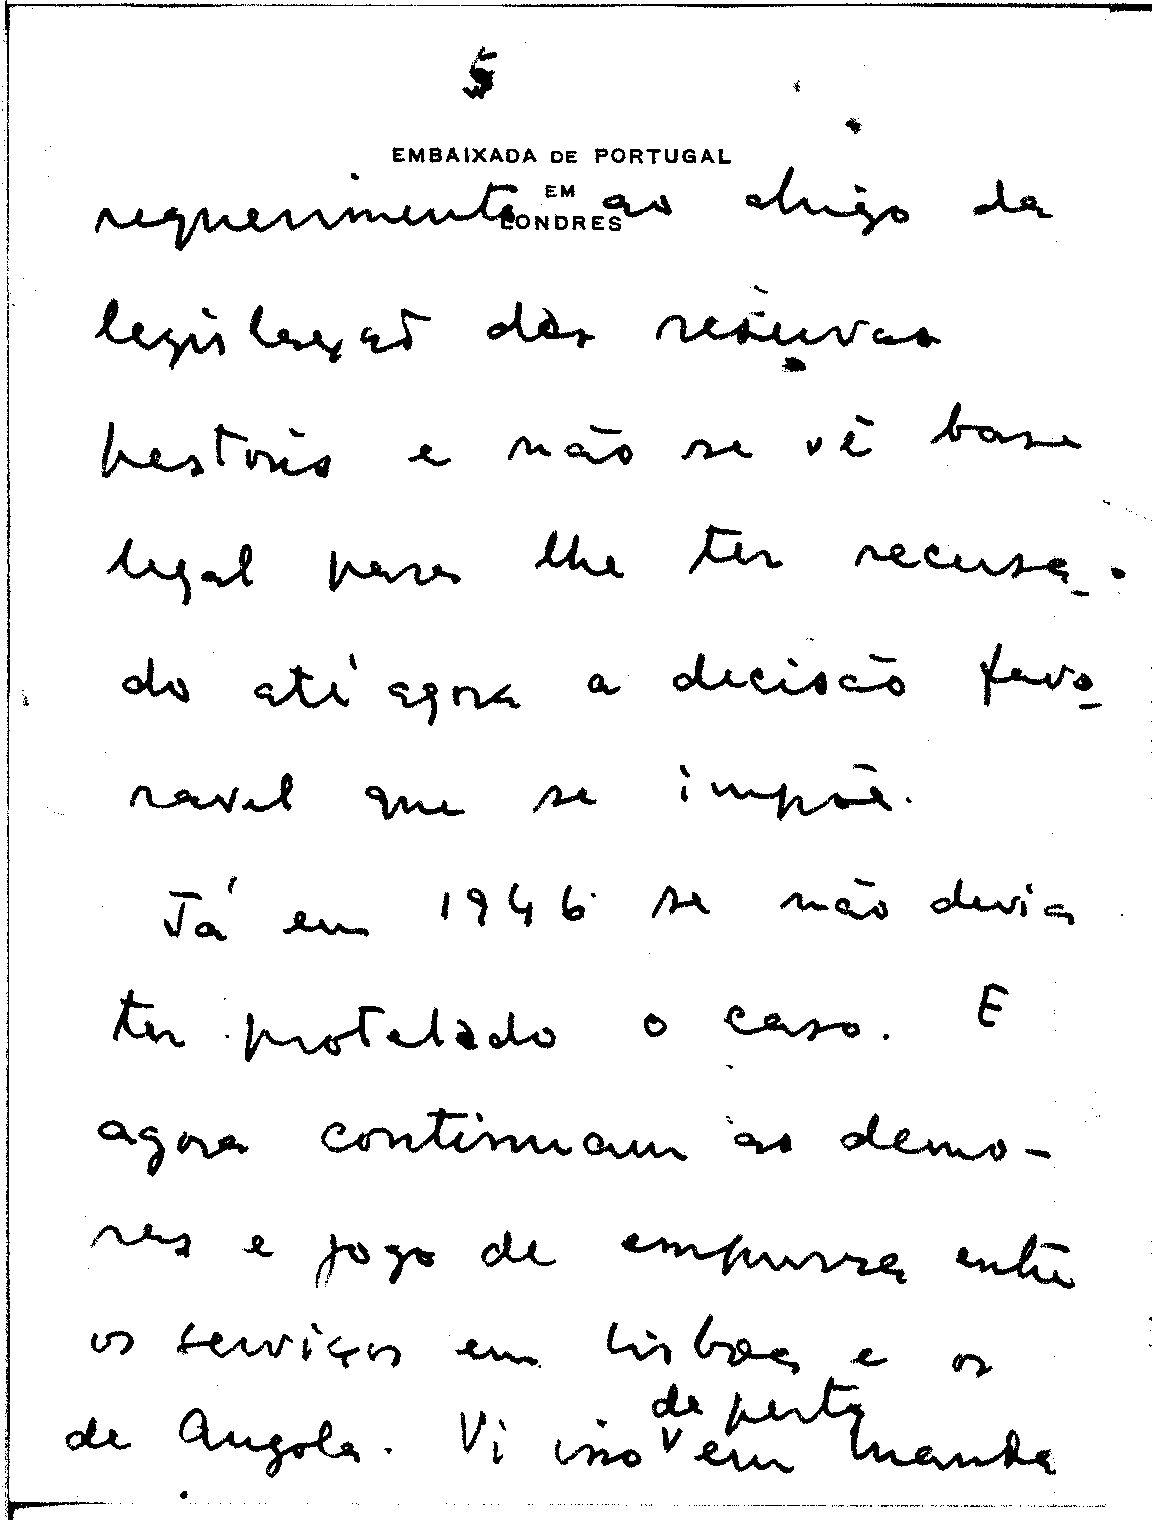 5
EMBAIXADA DE PORTUGAL
EM
LONDRES
requerimento ao abrigo da
legislação das reservas
pestoris e não se vê base
legal para lhe ter recusa-
do até agora a decisão favo-
ravel que se impõe.
Já em 1946 se não devia
ter protelado o caso. E
agora continuam as demo-
ras e jogo de empurra entre
os serviços em Lisboa e os
de perto
de Angola. Vi isso v em